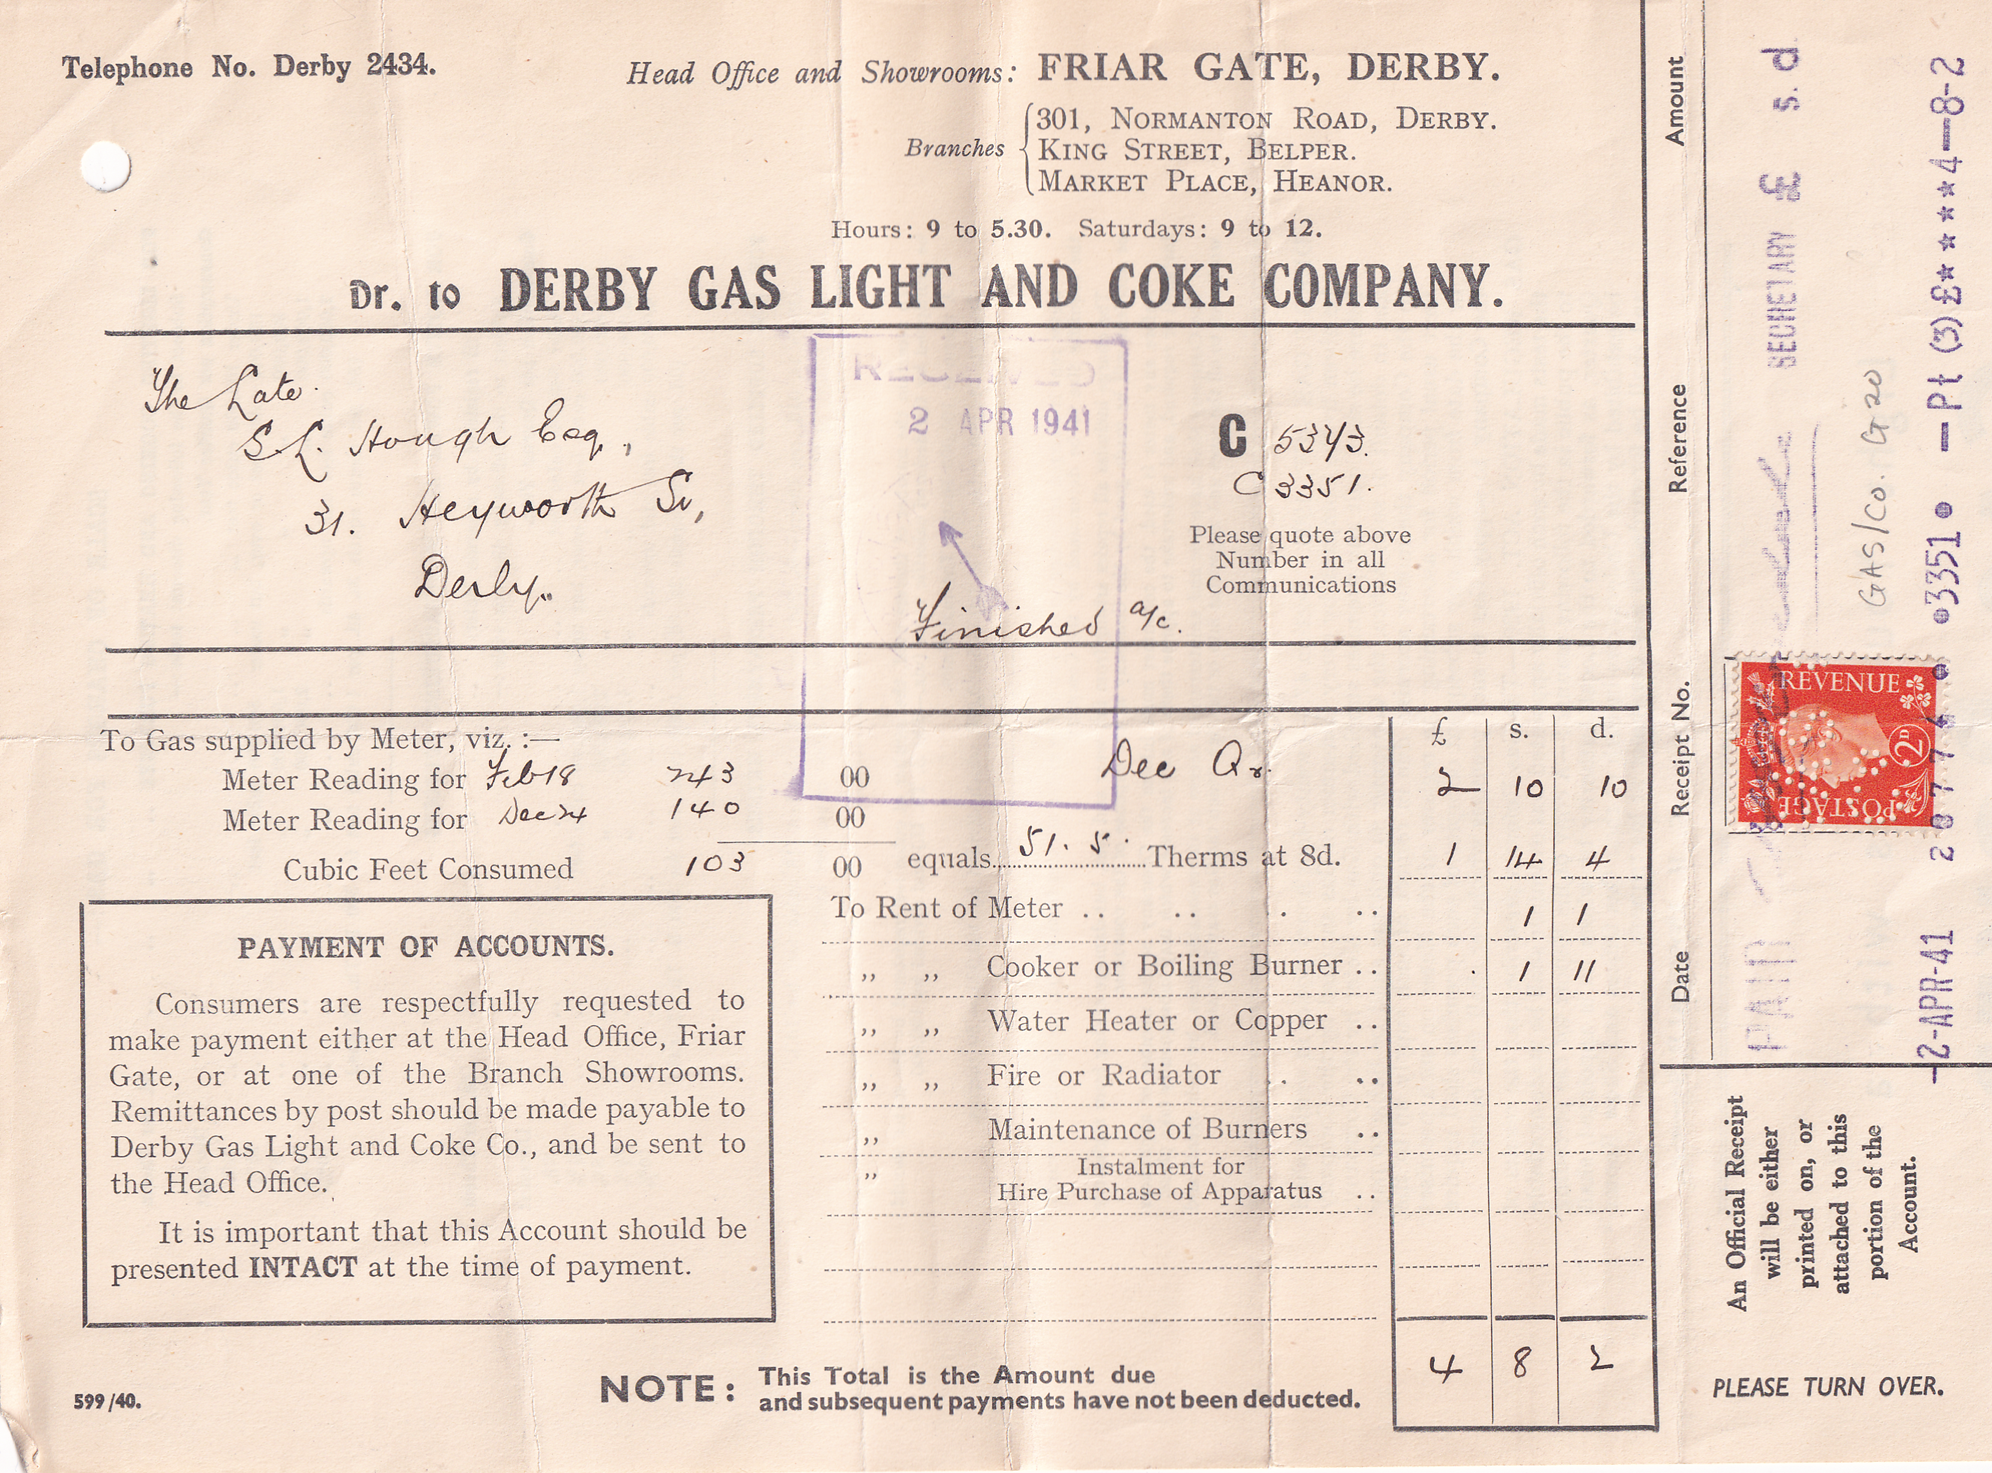 Telephone No. Derby 2434.
Head Office and Showrooms: FRIAR GATE, DERBY.
Branches
301, NORMANTON ROAD, DERBY.
KING STREET, BELPER.
MARKET PLACE, HEANOR.
Hours: 9 to 5.30. Saturdays: 9 to 12.
Dr. to DERBY GAS LIGHT AND COKE COMPANY.
The Late
S.L. Hough Esq,
31. Heyworth St,
Derby.
RECEIVED
2 APR 1941
C 5343.
C 3351.
Please quote above
Number in all
Communications
Finished a/c.
£ s. d.
To Gas supplied by Meter, viz. :—
Dec Qr. 2 10 10
Meter Reading for Feb 18 243 00
Meter Reading for Dec 24 140 00
Cubic Feet Consumed 103 00 equals 51.5. Therms at 8d. 1 14 4
To Rent of Meter .. .. . .. 1 1
,, ,, Cooker or Boiling Burner .. 1 11
,, ,, Water Heater or Copper ..
,, ,, Fire or Radiator .. ..
,, Maintenance of Burners ..
,, Instalment for
Hire Purchase of Apparatus ..
PAYMENT OF ACCOUNTS.
Consumers are respectfully requested to
make payment either at the Head Office, Friar
Gate, or at one of the Branch Showrooms.
Remittances by post should be made payable to
Derby Gas Light and Coke Co., and be sent to
the Head Office.
It is important that this Account should be
presented INTACT at the time of payment.
NOTE: This Total is the Amount due
and subsequent payments have not been deducted.
4 8 2
599/40.
Date Receipt No. Reference Amount
PAID SECRETARY £ s. d
GAS/CO. G 20
REVENUE
2D
POSTAGE
-2-APR-41 3351 — Pt (3) £****4—8-2
An Official Receipt
will be either
printed on, or
attached to this
portion of the
Account.
PLEASE TURN OVER.